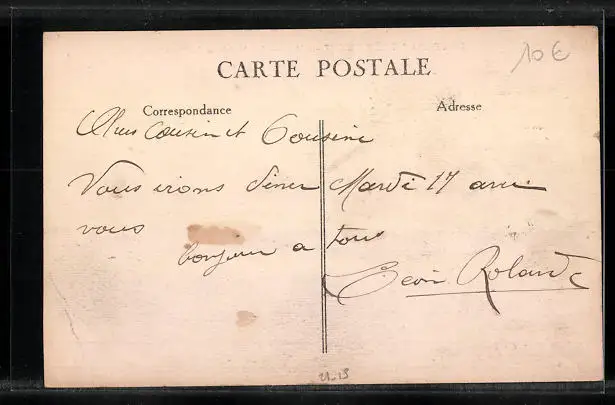 10€
CARTE POSTALE
Correspondance
Adresse
Cousin et Cousine
Nous irons diner Mardi 17 avec
vous
bonjour a tous
Roland